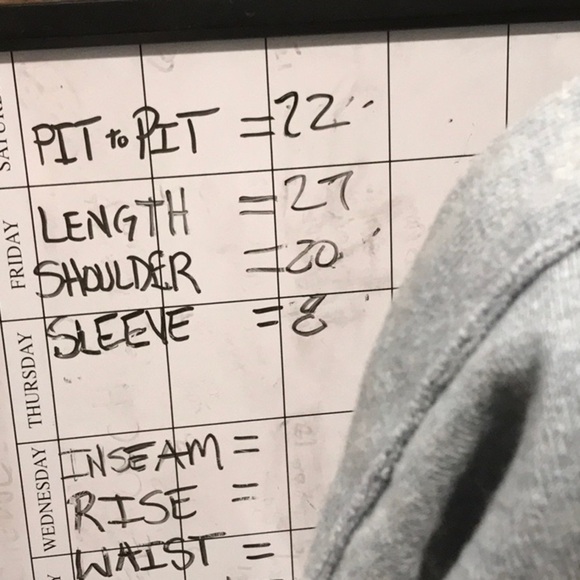 PIT to PIT = 22"
LENGTH = 27
SHOULDER = 20
SLEEVE = 8
INSEAM =
RISE =
WAIST =
FRIDAY
THURSDAY
WEDNESDAY